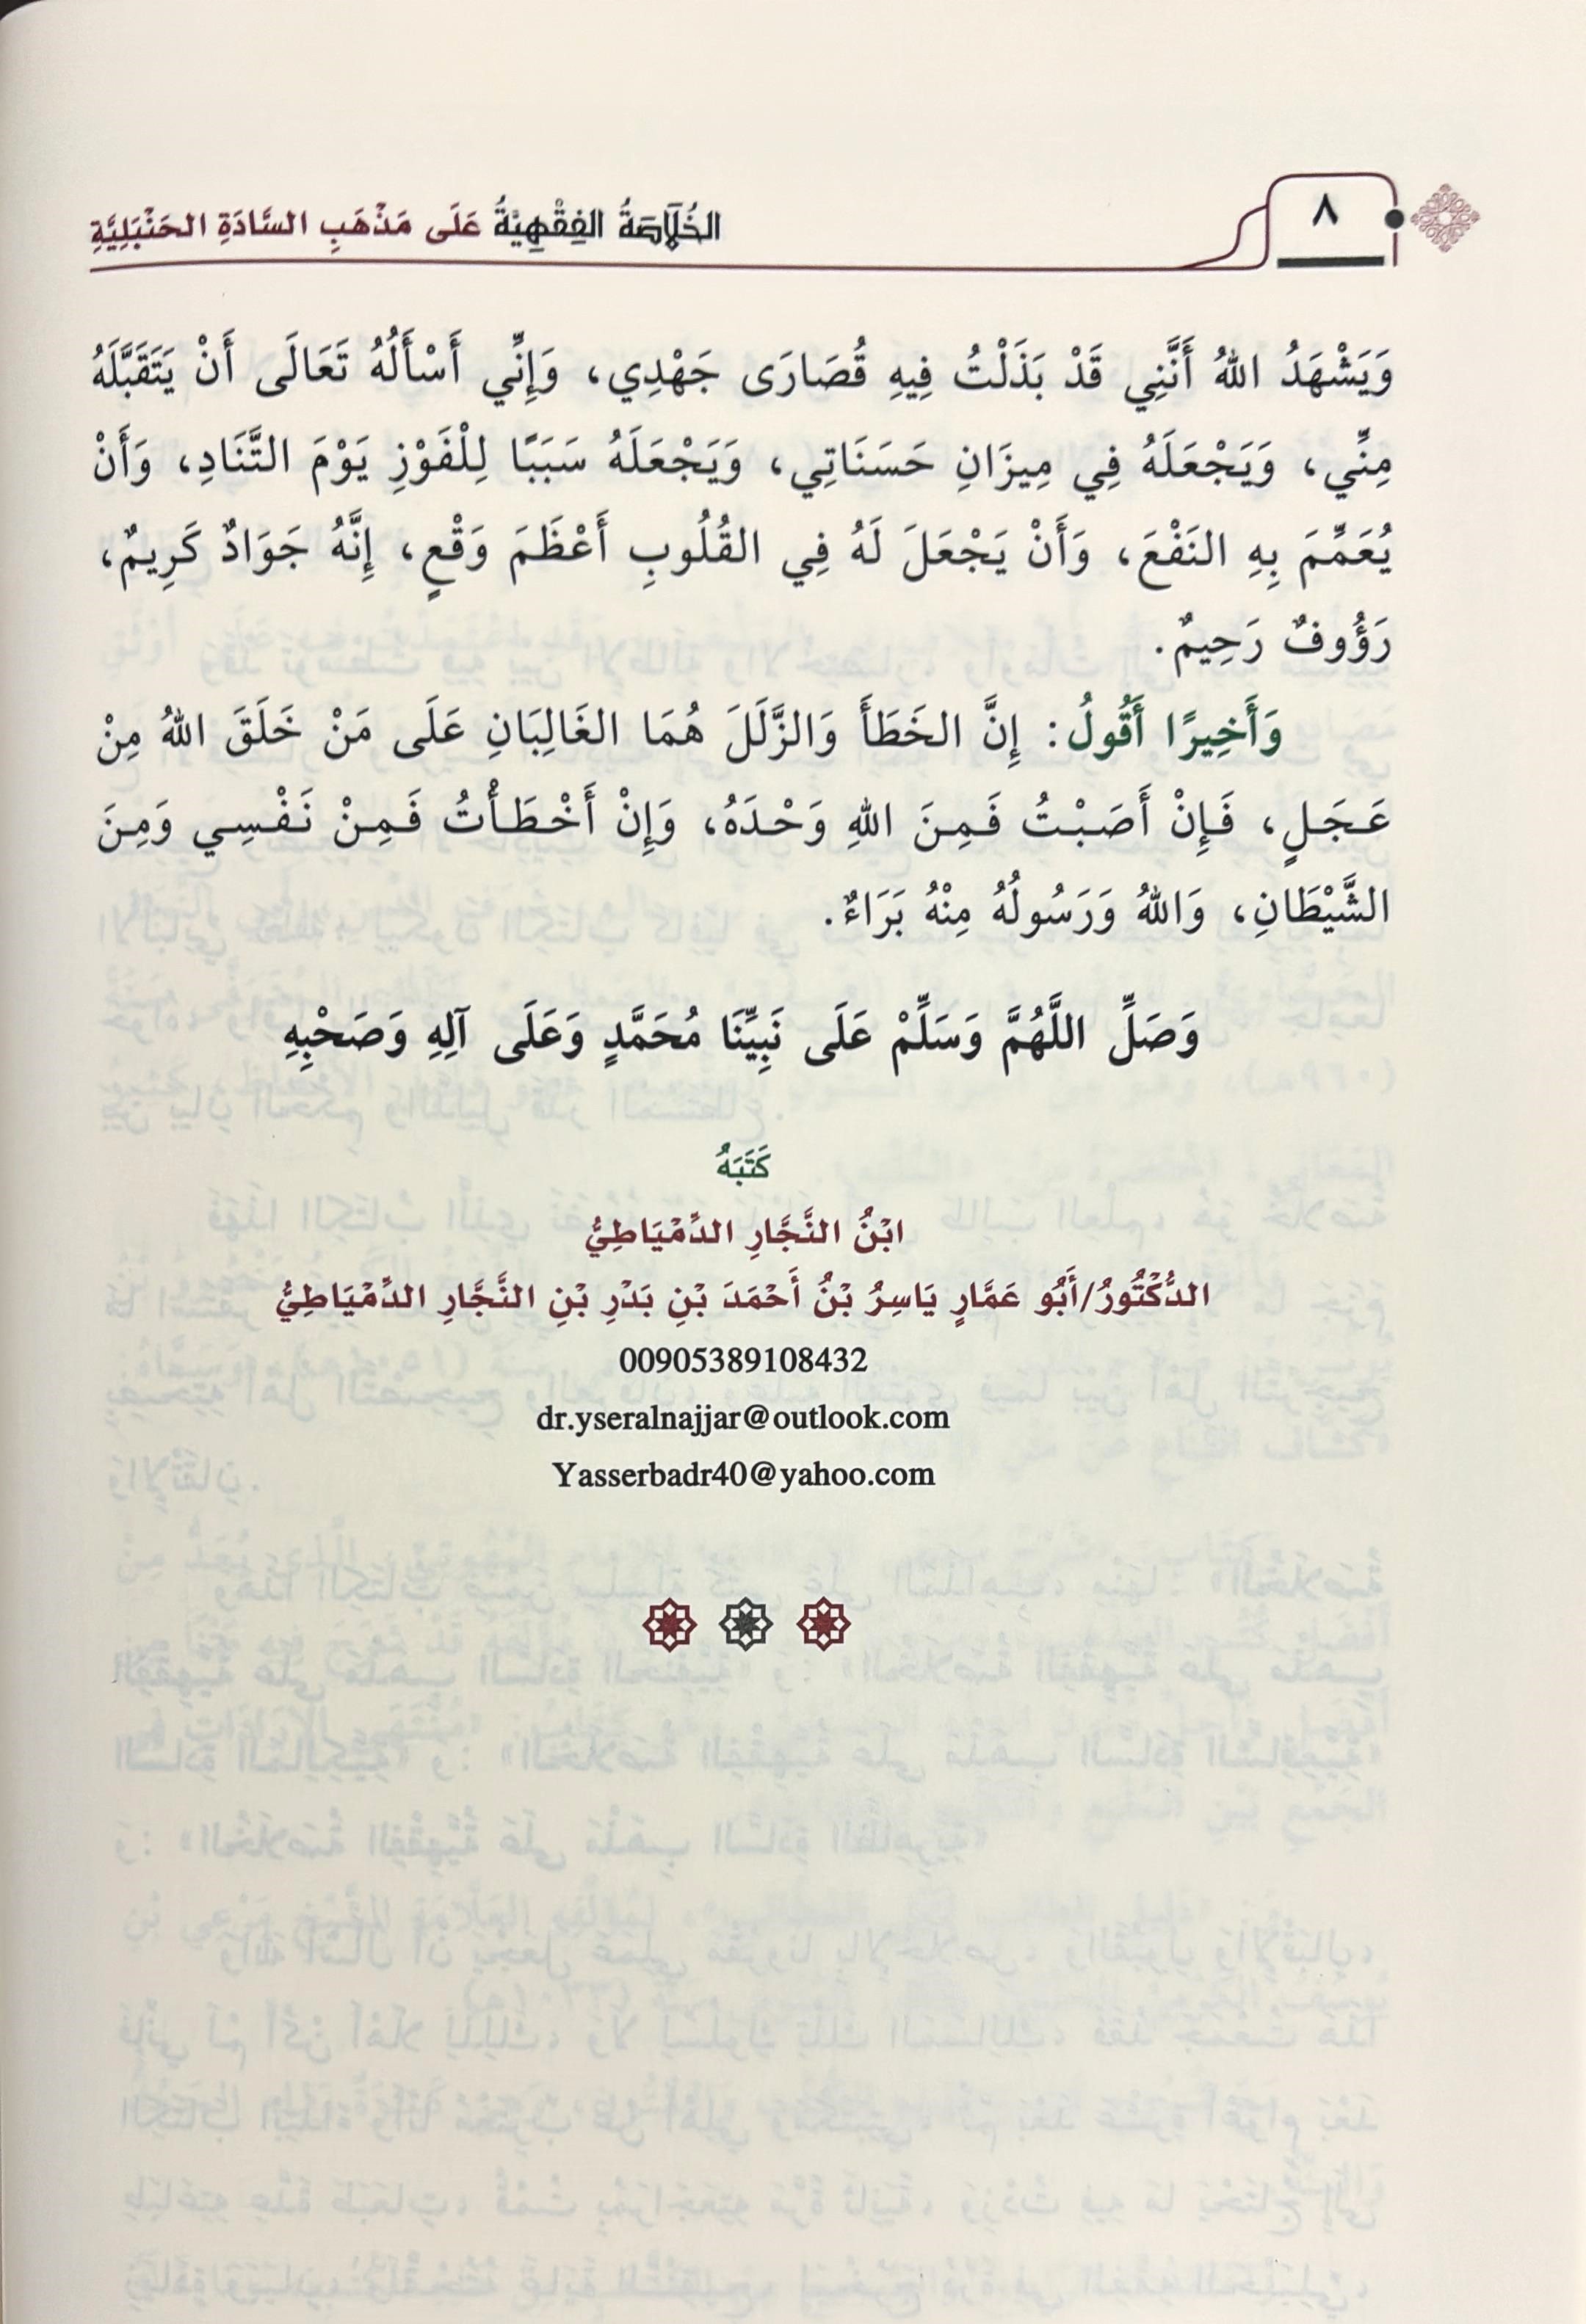 ٨
الخُلَاصَةُ الفِقْهِيَّةُ عَلَى مَذْهَبِ السَّادَةِ الحَنْبَلِيَّةِ
وَيَشْهَدُ اللهُ أَنَّنِي قَدْ بَذَلْتُ فِيهِ قُصَارَى جَهْدِي، وَإِنِّي أَسْأَلُهُ تَعَالَى أَنْ يَتَقَبَّلَهُ
مِنِّي، وَيَجْعَلَهُ فِي مِيزَانِ حَسَنَاتِي، وَيَجْعَلَهُ سَبَبًا لِلْفَوْزِ يَوْمَ التَّنَادِ، وَأَنْ
يُعَمِّمَ بِهِ النَفْعَ، وَأَنْ يَجْعَلَ لَهُ فِي القُلُوبِ أَعْظَمَ وَقْعٍ، إِنَّهُ جَوَادٌ كَرِيمٌ،
رَؤُوفٌ رَحِيمٌ.
وَأَخِيرًا أَقُولُ: إِنَّ الخَطَأَ وَالزَّلَلَ هُمَا الغَالِبَانِ عَلَى مَنْ خَلَقَ اللهُ مِنْ
عَجَلٍ، فَإِنْ أَصَبْتُ فَمِنَ اللهِ وَحْدَهُ، وَإِنْ أَخْطَأْتُ فَمِنْ نَفْسِي وَمِنَ
الشَّيْطَانِ، وَاللهُ وَرَسُولُهُ مِنْهُ بَرَاءٌ.
وَصَلِّ اللَّهُمَّ وَسَلِّمْ عَلَى نَبِيِّنَا مُحَمَّدٍ وَعَلَى آلِهِ وَصَحْبِهِ
كَتَبَهُ
ابْنُ النَّجَّارِ الدِّمْيَاطِيُّ
الدُّكْتُورُ/أَبُو عَمَّارٍ يَاسِرُ بْنُ أَحْمَدَ بْنِ بَدْرِ بْنِ النَّجَّارِ الدِّمْيَاطِيُّ
00905389108432
dr.yseralnajjar@outlook.com
Yasserbadr40@yahoo.com